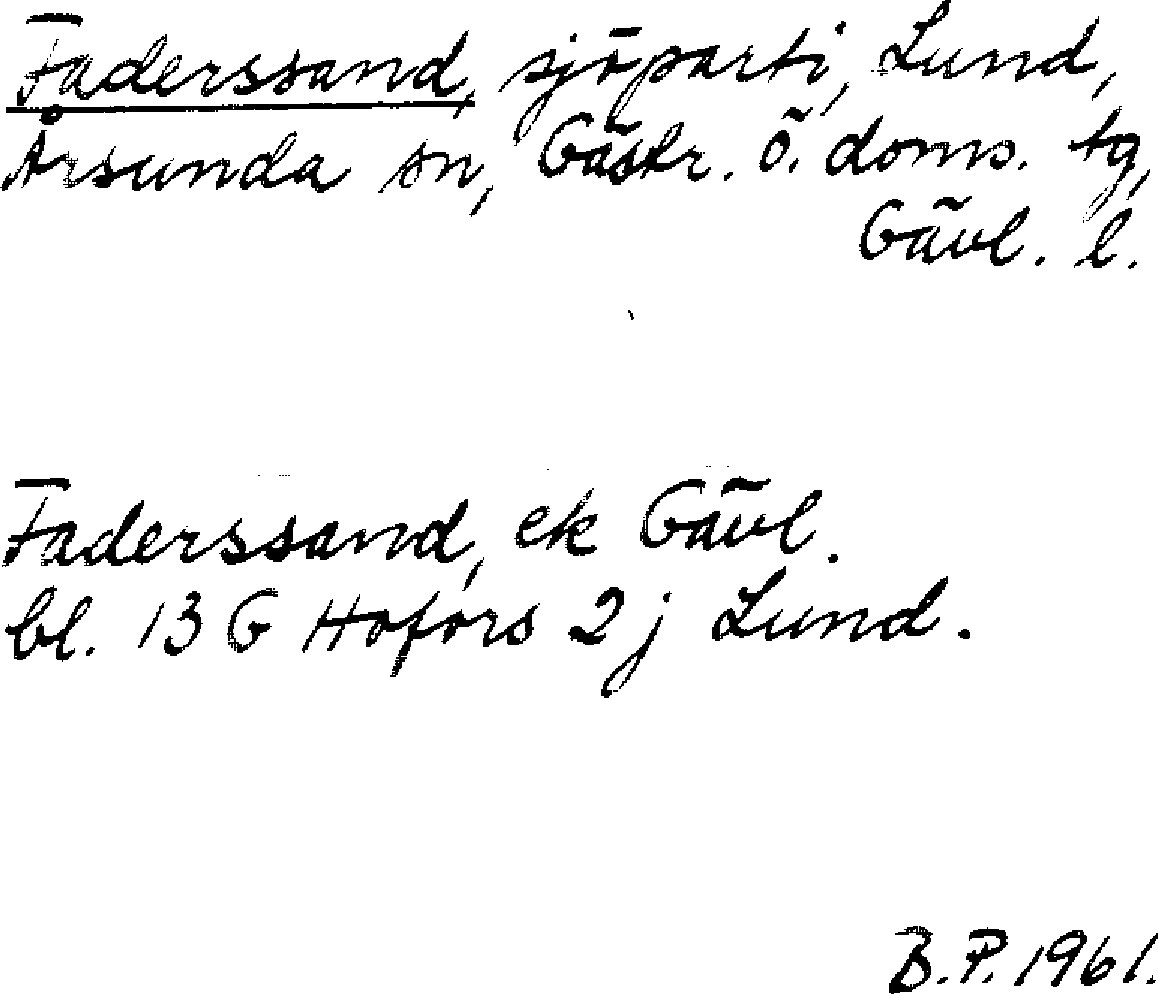 Faderssand, sjöparti, Lund,
Årsunda sn, Gästr. ö. doms. tg,
Gävl. l.
Faderssand, ek Gävl.
bl. 13 G Hofors 2 j Lund.
B.P. 1961.